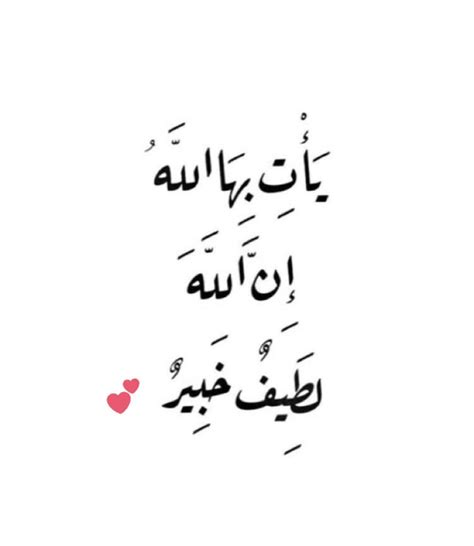 يَأْتِ بِهَا اللَّهُ
إِنَّ اللَّهَ
لَطِيفٌ خَبِيرٌ 💕